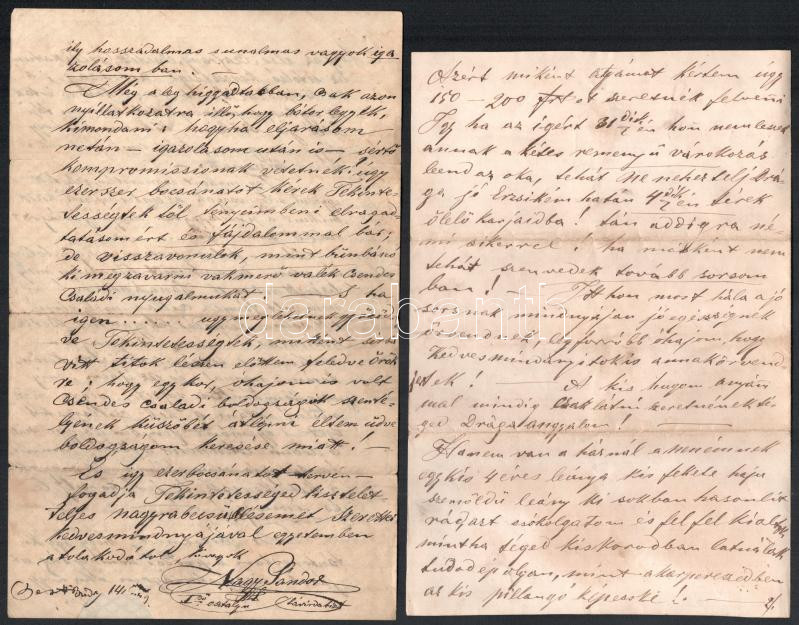 ily hosszadalmas s unalmas vagyok iga
zolásomban. —
Még a leg higgadtabban, csak azon
nyilatkozatra illő, hogy bátor legyek,
kimondani; hogy ha eljárásom
netán — igazolásom után is — sértő
kompromissionak vetetnék; úgy
ezerszer bocsánatot kérek Tekinte-
tességtek től tényeimbeni elragad-
tatásomért és fájdalommal bár,
de visszavonulok, mint bűnbánó
ki megzavarni vakmerő valék csendes
Családi nyugalmukat — S ha
igen ..... úgy
ve Tekintetességtek, amiként
vitt titok lészen előttem feledve örök
re; hogy egykor, óhajom is volt
Csendes családi boldogságok szente-
lyének küszöbét átlépni éltem üdve
boldogságom keresése miatt! —
És így ezer bocsánatot
fogadja Tekintetességed tisztelet
teljes nagyrabecsülésemet szeretett
kedves mindnyájával egyetemben
a tolakodótól,
Nagy Sándor
Ior osztályu távirdatiszt
Azért miként atyámat kértem úgy
150 – 200 frtot szeretnék felvenni
Igy ha az igért 31dik én hon nemleszek
annak a kétes reményű várokozás
leend az oka, tehát Ne neheztelj Drá-
ga jó Ercsikém hatán 4dik én térek
ölelő karjaidba! tán addigra né-
mi sikerrel; ha másként nem
tehát szenvedek tovább sorsom
ban! — Itt hon most hála a jó
sorsnak mindnyájan jó egészségnek
örvendnek, legforróbb óhajom, hogy
kedves mindnyájitok is annak örvend
jetek! — A kis hugom anyám
mal mindig csak látni szeretnének té-
ged Drágatangyalom! —
Hanem van a háznál a nenémnek
egy kis 4 éves leánya kis fekete haju
szemöldű leány ki sokban hasonlít
rád azt csókolgatom és fel fel kiáltok
mintha téged kiskorodban látnálak
tudod epolyan, mint a karperecedben
az kis pillangó képecske! —
darabanth